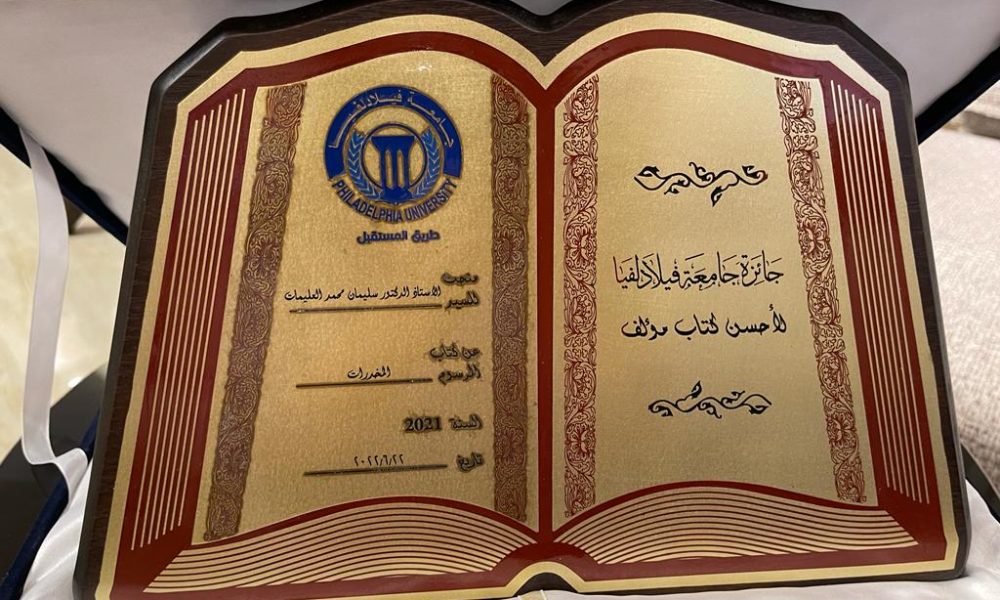 جائزة جامعة فيلادلفيا
لأحسن كتاب مؤلف
جامعة فيلادلفيا
PHILADELPHIA UNIVERSITY
طريق المستقبل
منحت
للسيد الاستاذ الدكتور سليمان محمد العليمات
عن كتاب
المرسوم المخدرات
لسنة 2021
تاريخ ٢٠٢٢/٦/٢٢